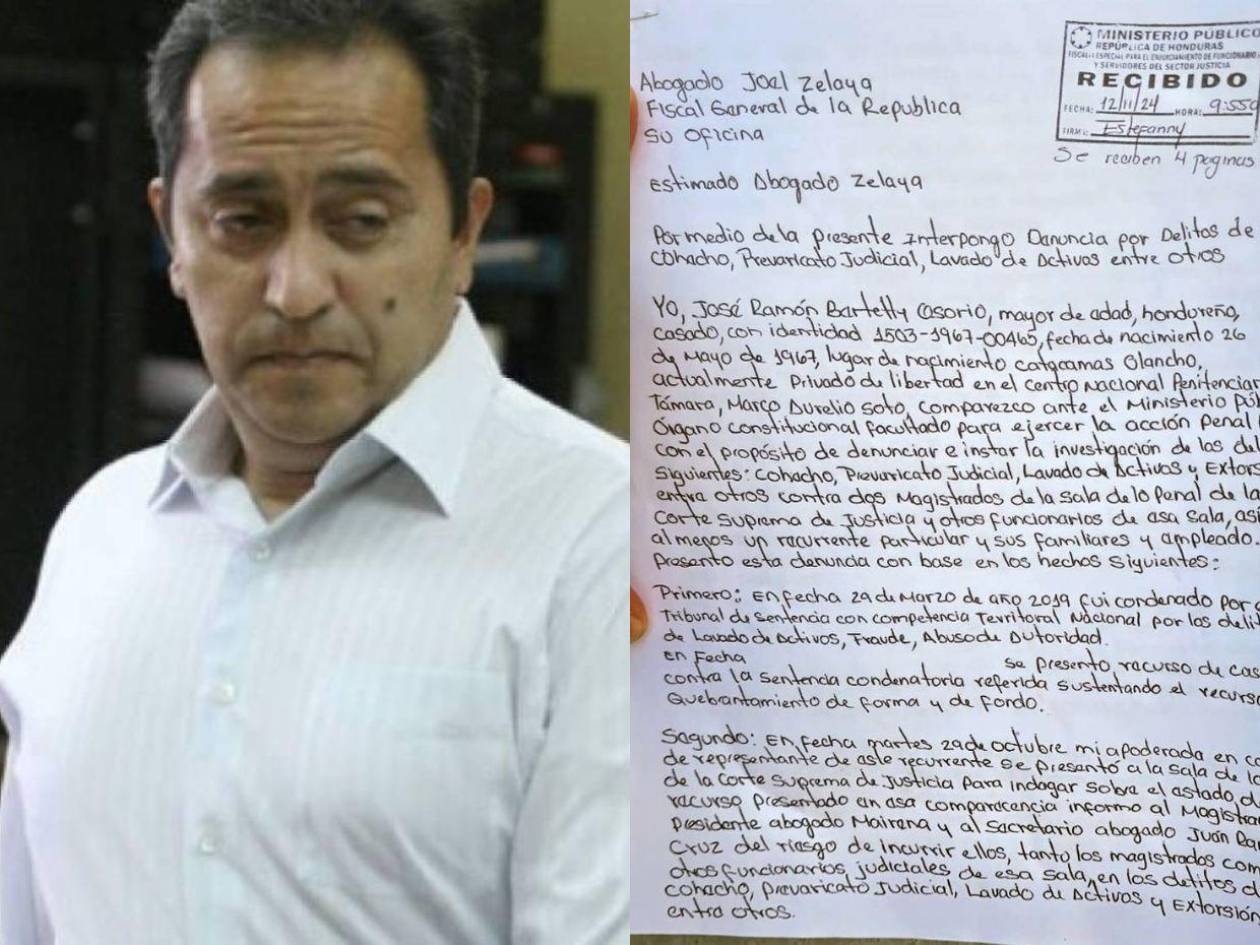 MINISTERIO PÚBLICO
REPÚBLICA DE HONDURAS
FISCALÍA ESPECIAL PARA EL ENJUICIAMIENTO DE FUNCIONARIOS
Y SERVIDORES DEL SECTOR JUSTICIA
RECIBIDO
FECHA: 12/11/24 HORA: 9:55
FIRMA: Estefanny
Se reciben 4 paginas
Abogado Joel Zelaya
Fiscal General de la Republica
Su Oficina
Estimado Abogado Zelaya
Por medio de la presente Interpongo Denuncia por Delitos de
Cohecho, Prevaricato Judicial, Lavado de Activos entre otros
Yo, José Ramón Bertetty Osorio, mayor de edad, hondureño,
casado, con identidad 1503-1967-00465, fecha de nacimiento 26
de Mayo de 1967, lugar de nacimiento catacamas Olancho,
actualmente Privado de libertad en el Centro Nacional Penitencia
Támara, Marco Aurelio Soto, comparezco ante el Ministerio Púb
Órgano constitucional facultado para ejercer la acción Penal
con el propósito de denunciar e instar la investigación de los del
Siguientes: Cohecho, Prevaricato Judicial, Lavado de Activos y Extors
entre otros contra dos Magistrados de la Sala de lo Penal de la
Corte Suprema de Justicia y otros funcionarios de esa Sala, asi
al menos un recurrente particular y sus familiares y empleado.
Presento esta denuncia con base en los hechos siguientes:
Primero: En fecha 29 de Marzo de año 2019 fui condenado por
Tribunal de Sentencia con competencia Territoral Nacional por los delit
de Lavado de Activos, Fraude, Abuso de Autoridad.
en Fecha se presento recurso de cas
contra la sentencia condenatoria referida sustentando el recurso
Quebrantamiento de forma y de fondo.
Segundo: En fecha martes 29 de octubre mi apoderada en co
de representante de este recurrente se presentó a la sala de lo
de la Corte Suprema de Justicia para indagar sobre el estado d
recurso presentado en esa comparecencia informo al Magistra
Presidente abogado Mairena y al Secretario abogado Juán Ra
Cruz del riesgo de incurrir ellos, tanto los magistrados com
otros funcionarios judiciales de esa Sala, en los delitos d
Cohecho, Prevaricato Judicial, Lavado de Activos y Extorsión
entre otros.